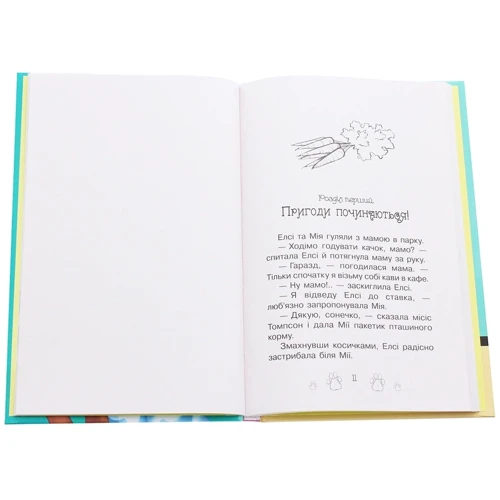 Розділ перший
Пригоди починаються!
Елсі та Мія гуляли з мамою в парку.
— Ходімо годувати качок, мамо? —
спитала Елсі й потягнула маму за руку.
— Гаразд, — погодилася мама. —
Тільки спочатку я візьму собі кави в кафе.
— Ну мамо!.. — заскиглила Елсі.
— Я відведу Елсі до ставка, —
люб'язно запропонувала Мія.
— Дякую, сонечко, — сказала місіс
Томпсон і дала Мії пакетик пташиного
корму.
Змахнувши косичками, Елсі радісно
застрибала біля Мії.
11